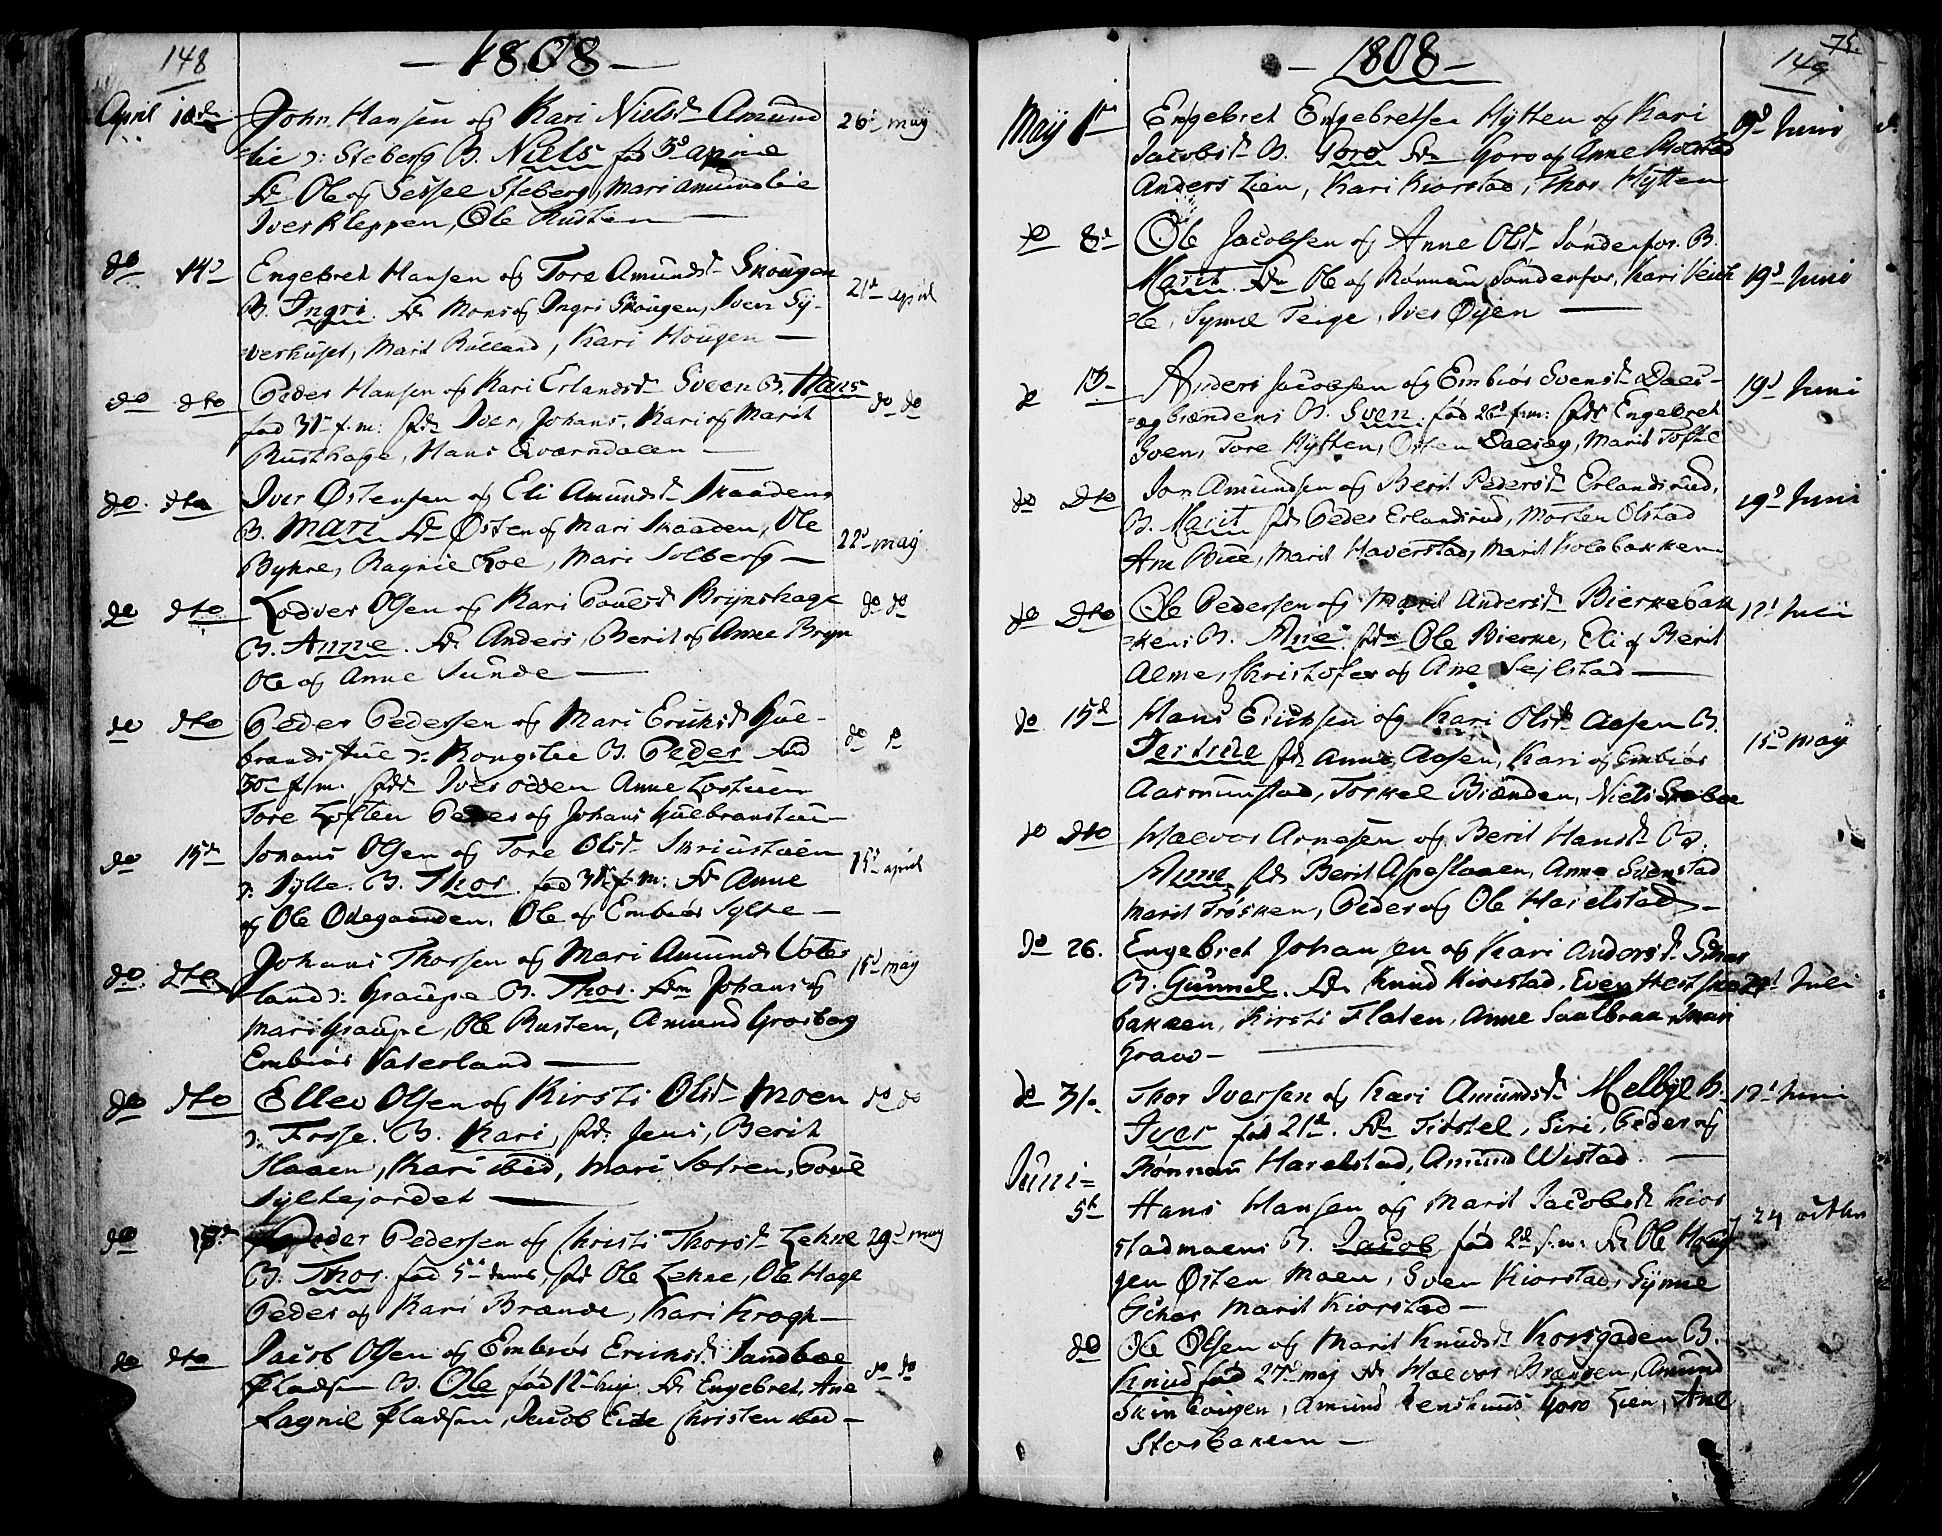 148
— 1808 —
April 10de John Hansen og Kari Nielsd. Amund
lie ɔ: Steberg B. Niels fød 3d april
Fd. Ole og Sessel Steberg, Mari Amundlie
Iver Kleppen, Ole Rusten —
26d may
do 14d Engebret Hansen og Tore Amundsd. Skougen
B. Ingri. Fd. Mons og Ingri Skougen, Iver Sy-
verhuset, Marit Rulland, Kari Hougen —
21d april
do dto Peder Hansen og Kari Erlandsd. Sveen B. Hans
fød 31d f.m: Fd. Iver, Johans, Kari og Marit
Rusthage, Hans Qværndalen —
do do
do. dto Iver Østensen og Eli Amundsd. Skaadens
B. Mari Fd. Østen og Mari Skaaden, Ole
Bykre, Ragnie Loe, Mari Solberg —
22d may
do dto Lodver Olsen og Kari Povelsd. Brynshage
B. Anne. Fd. Anders, Berit og Anne Bryn
Ole og Anne Sunde —
do do
do dto Peder Pedersen og Mari Eriksd. Gul-
brandstue ɔ: Kongslie B. Peder fød
30d f.m. Fd. Iver Odden Anne Lostuen
Tore Loften Peder og Johans Gulbranstuen
do do
do 15d Johans Olsen og Tore Olsd. Skriustuen
ɔ: Sylte. B. Thor. fød 31d f.m: Fd. Anne
og Ole Ødegaarden, Ole og Embiør Sylte —
15d april
do. dto. Johans Thorsen og Mari Amunds Vater
land ɔ: Graupe B. Thor. Fd. Johans og
Mari Graupe, Ole Rusten, Amund Grosberg
Embiør Vaterland —
15d may
do dto Ellev Olsen og Kirsti Olsd. Moen
ɔ: Frose. B. Kari, Fd. Jens, Berit
Slaaen, Kari ibid, Mari Sætren, Povel
Syltejordet —
do do
do 18d Peder Pedersen og Christi Thorsd. Lehne
B. Thor. fød 5d, Fd. Ole Lehne, Ole Hage
Peder og Kari Brænde, Kari Krogh —
29d may
do dto Jacob Olsen og Embiør Eriksd. Sandboe
pladsen B. Ole fød 12d huj. Fd. Engebret, Ane
Ragnil pladsen, Jacob Eide Christen ibid —
do do
75.
149
— 1808 —
Maij 1d Engebret Engebretsen Hytten og Kari
Jacobsd. B. Goro Fd. Goro og Anne Kiorstad
Anders Lien, Kari Kiorstad, Thor Hytten
19d Juni
do 8d Ole Jacobsen og Anne Olsd. Sønderfor. B.
Marit. Fd. Ole og Rønnau Sønderfor, Kari Veik
le, Synne Teige, Iver Øyen —
19d Juni
do 13 Anders Jacobsen og Embiør Svensd. Dals-
ægbrændens B. Sven. fød 26d f.m: Fd. Engebret
Sven, Tore Hytten, Østen Dalsæg, Marit Tofte
19d Juni
do Dto Jon Amundsen og Berit Pedersd. Erlandsrud,
B. Marit Fd. Peder Erlandsrud, Morten Olstad
Ane Bue, Marit Haverstad, Marit Kolobakken
19d Juni
do Dto Ole Pedersen og Marit Andersd. Bierkebak
kens B. Ane Fd. Ole Bierke, Eli og Berit
Alme, Christofer og Ane Sejlstad —
12d Juni
do 15d Hans Ericksen og Kari Olsd. Aasen B.
Fd. Anne Aasen, Kari og Embiør
Aasmunstad, Torkel Brænden, Niels
15d may
do Dto Halvor Arnesen og Berit Hansd. B.
Anne Fd. Berit Aspeslaaen, Anne Svenstad
Marit Trøsken, Peder og Ole Harelstad —
do 26. Engebret Johansen og Kari Andersd.
B. Gunnil. Fd. Knud Kiorstad, Even
bakken, Kirsti Flaten, Anne Saalbraa, Mari
Graae —
Juli
do 31. Thor Iversen og Kari Amundsd. Melbye B.
Iver fød 21d. Fd. Tiøstel, Siri, Peder og
Rønnau Harelstad, Amund Wistad. —
12d Juni
Juni
5d Hans Hansen og Marit Jacobsd. Kior
stadmoens B. Jacob fød 2d f.m: Fd. Ole Houg
gen Østen Moen, Sven Kiorstad, Synne
Marit Kiorstad —
24 octbr
do Ole Olsen og Marit Knudsd. Korsgaden B.
Knud fød 27d maj Fd. Halvor Brænden, Amund
Skinlougen, Amund Goro Lien, Ane
Storbakken —